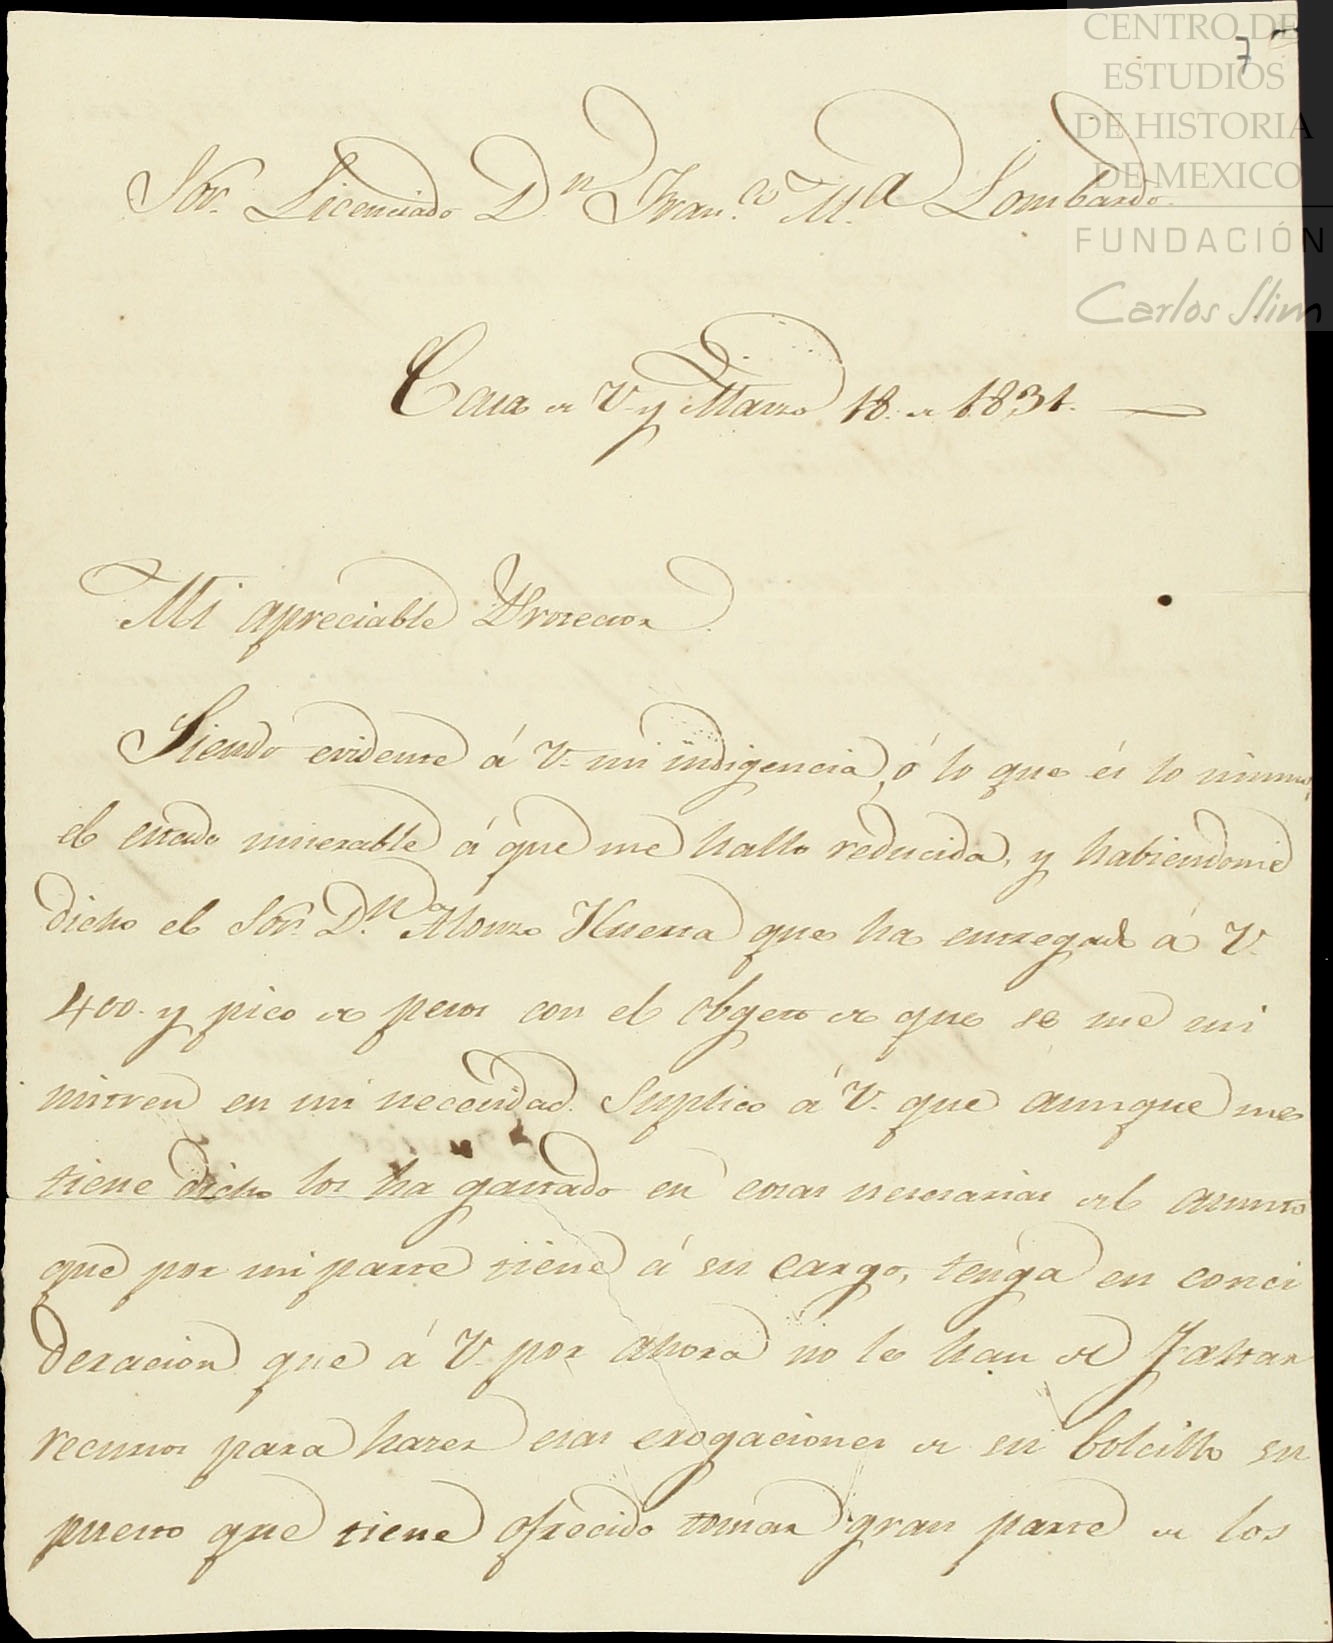 CENTRO DE
ESTUDIOS
DE HISTORIA
DE MEXICO
FUNDACIÓN
Carlos Slim
7
Sor. Licenciado D.n Fran.co M.a Lombardo.
Casa de V. y Marzo 18. de 1831.
Mi apreciable Protector.
Siendo evidente á V. mi indigencia, ó lo que és lo mismo,
el estado miserable á que me hallo reducida, y habiendome
dicho el Sor. D.n Alonzo Huerta que ha entregado á V.
400. y pico de pesos con el obgeto de que se me mi
nistren en mi necesidad. Suplico á V. que aunque me
tiene dicho los ha gastado en cosas nesesarias del asunto
que por mi parte tiene á su cargo, tenga en conci
deracion que á V. por ahora no le han de faltar
recursos para hazer esas erogaciones de su bolcillo su
puesto que tiene ofrecido tomar gran parte de los